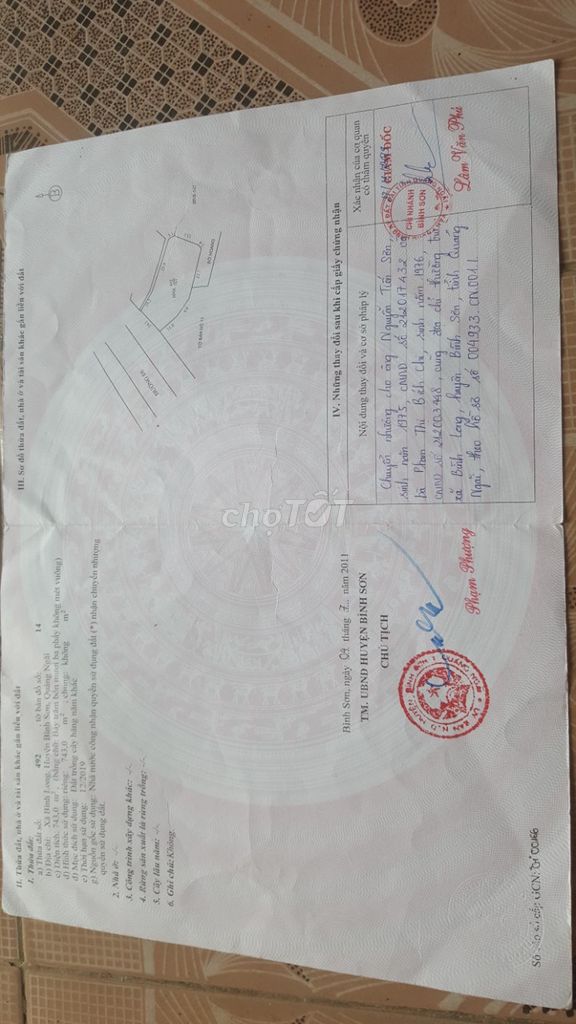 II. Thửa đất, nhà ở và tài sản khác gắn liền với đất
1. Thửa đất:
a) Thửa đất số: 492 , tờ bản đồ số: 14
b) Địa chỉ: Xã Bình Long, Huyện Bình Sơn, Quảng Ngãi
c) Diện tích: 743,0 m², (bằng chữ: Bảy trăm bốn mươi ba phẩy không mét vuông)
d) Hình thức sử dụng: riêng: 743,0 m², chung: không m²
đ) Mục đích sử dụng: Đất trồng cây hàng năm khác
e) Thời hạn sử dụng: 12/2019
g) Nguồn gốc sử dụng: Nhà nước công nhận quyền sử dụng đất (*) nhận chuyển nhượng
quyền sử dụng đất.
2. Nhà ở: -/-
3. Công trình xây dựng khác: -/-
4. Rừng sản xuất là rừng trồng: -/-
5. Cây lâu năm: -/-
6. Ghi chú: Không
Bình Sơn, ngày 04 tháng 7 năm 2011
TM. UBND HUYỆN BÌNH SƠN
CHỦ TỊCH
Phạm Phượng
III. Sơ đồ thửa đất, nhà ở và tài sản khác gắn liền với đất
IV. Những thay đổi sau khi cấp giấy chứng nhận
Nội dung thay đổi và cơ sở pháp lý
Xác nhận của cơ quan
có thẩm quyền
Chuyển nhượng cho ông Nguyễn Tiến Sơn
sinh năm 1975, CMND số 212017432
bà Phạm Thị Bích Chi, sinh năm 1976,
CMND số 212003748, cùng địa chỉ thường trú
xã Bình Long, huyện Bình Sơn, tỉnh Quảng
Ngãi, theo hồ sơ số 004933.CN.001.1
GIÁM ĐỐC
CHI NHÁNH
BÌNH SƠN
Lâm Văn Phú
chợTỐT